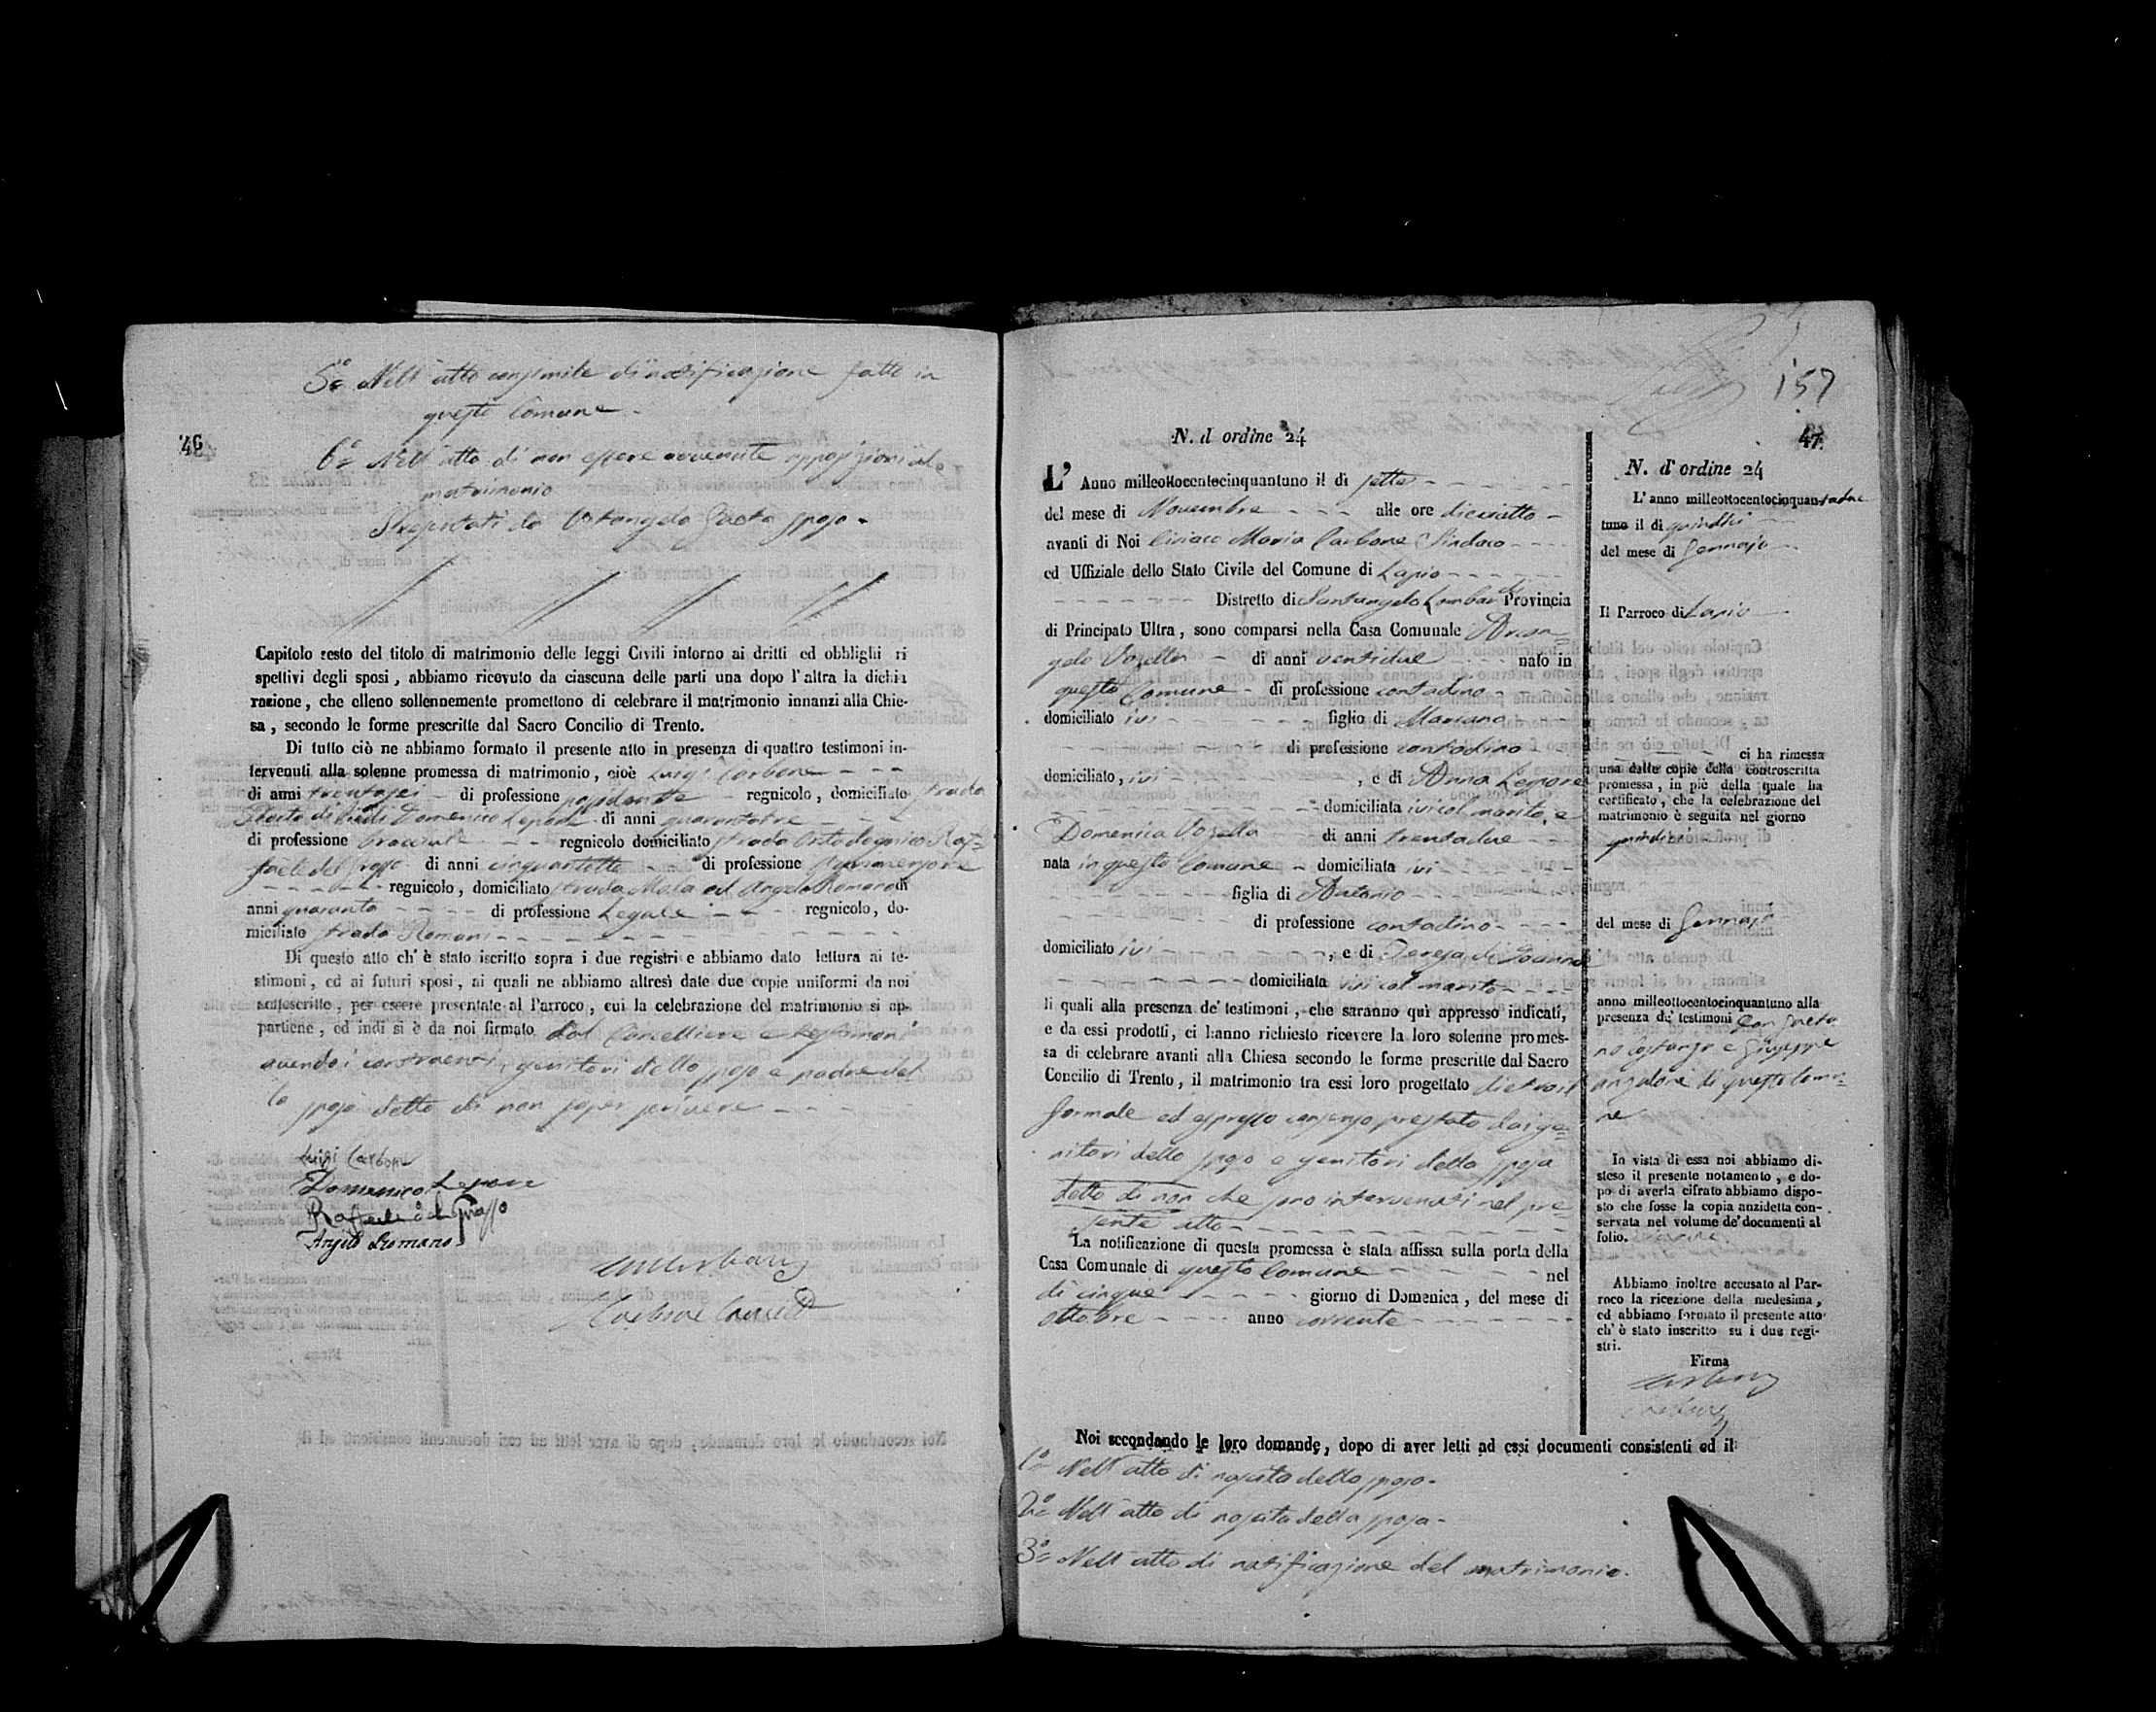 5º Nell'atto consimile di notificazione fatto in
questo Comune -
46
6º Nell'atto di non essere avvenute opposizioni al
matrimonio
sposo -
Capitolo sesto del titolo di matrimonio delle leggi Civili intorno ai dritti ed obblighi ri
spettivi degli sposi, abbiamo ricevuto da ciascuna delle parti una dopo l'altra la dichia
razione, che elleno sollennemente promettono di celebrare il matrimonio innanzi alla Chie-
sa, secondo le forme prescritte dal Sacro Concilio di Trento.
Di tutto ciò ne abbiamo formato il presente atto in presenza di quattro testimoni in-
tervenuti alla solenne promessa di matrimonio, cioè Luigi Carbone
di anni trentasei di professione possidente regnicolo, domiciliato strada
Domenico Lepore di anni quarantatre
di professione bracciale regnicolo domiciliato strada Raf=
faele del Grosso di anni cinquantotto di professione
regnicolo, domiciliato strada ed Angelo Romano di
anni quaranta di professione Legale regnicolo, do-
miciliato strada Romani
Di questo atto ch'è stato iscritto sopra i due registri e abbiamo dato lettura ai te-
stimoni, ed ai futuri sposi, ai quali ne abbiamo altresì date due copie uniformi da noi
sottoscritte, per essere presentate al Parroco, cui la celebrazione del matrimonio si ap-
partiene, ed indi si è da noi firmato dal Cancelliere e testimoni
avendo i contraenti, genitori dello sposo e padre del
la sposa detto di non saper scrivere
Luigi Carbone
Domenico Lepore
Raffaele del Grosso
Angelo Romano
Carbone
157
47
N. d ordine 24
L' Anno milleottocentocinquantuno il di sette
del mese di Novembre alle ore dieciotto
avanti di Noi Ciriaco Maria Carbone Sindaco
ed Uffiziale dello Stato Civile del Comune di Lapio
Distretto di Santangelo Lombardi Provincia
di Principato Ultra, sono comparsi nella Casa Comunale Arcan=
gelo Vozella di anni ventidue nato in
questo Comune di professione contadino
domiciliato ivi figlio di Mariano
di professione contadino
domiciliato, ivi, e di Anna Lepore
domiciliata ivi col marito, e
Domenica Vozella di anni trentadue
nata in questo Comune domiciliata ivi
figlia di Antonio
di professione contadino
domiciliato ivi, e di Teresa di
domiciliata ivi col marito
li quali alla presenza de' testimoni, che saranno quì appresso indicati,
e da essi prodotti, ci hanno richiesto ricevere la loro solenne promes-
sa di celebrare avanti alla Chiesa secondo le forme prescritte dal Sacro
Concilio di Trento, il matrimonio tra essi loro progettato dietro il
formale ed espresso consenso prestato dai ge=
nitori dello sposo e genitori della sposa
detto di non che sono intervenuti nel pre=
sente atto
La notificazione di questa promessa è stata affissa sulla porta della
Casa Comunale di questo Comune nel
dì cinque giorno di Domenica, del mese di
ottobre anno corrente
Noi secondando le loro domande, dopo di aver letti ad essi documenti consistenti ed il
1º Nell'atto di nascita dello sposo -
2º Nell'atto di nascita della sposa -
3º Nell'atto di notificazione del matrimonio.
N. d' ordine 24
L' anno milleottocentocinquan
tuno il di quindici
del mese di Gennajo
Il Parroco di Lapio
ci ha rimessa
una delle copie della controscritta
promessa, in piè della quale ha
certificato, che la celebrazione del
matrimonio è seguita nel giorno
quindici
del mese di Gennajo
anno milleottocentocinquantuno alla
presenza de' testimoni Don Gaeta
no Costanzo e Giuseppe
di questo Comu=
ne
In vista di essa noi abbiamo di-
steso il presente notamento, e do-
po di averla cifrato abbiamo dispo-
sto che fosse la copia anzidetta con-
servata nel volume de' documenti al
folio.
Abbiamo inoltre accusato al Par-
roco la ricezione della medesima,
ed abbiamo formato il presente atto
ch' è stato inscritto su i due regi-
stri.
Firma